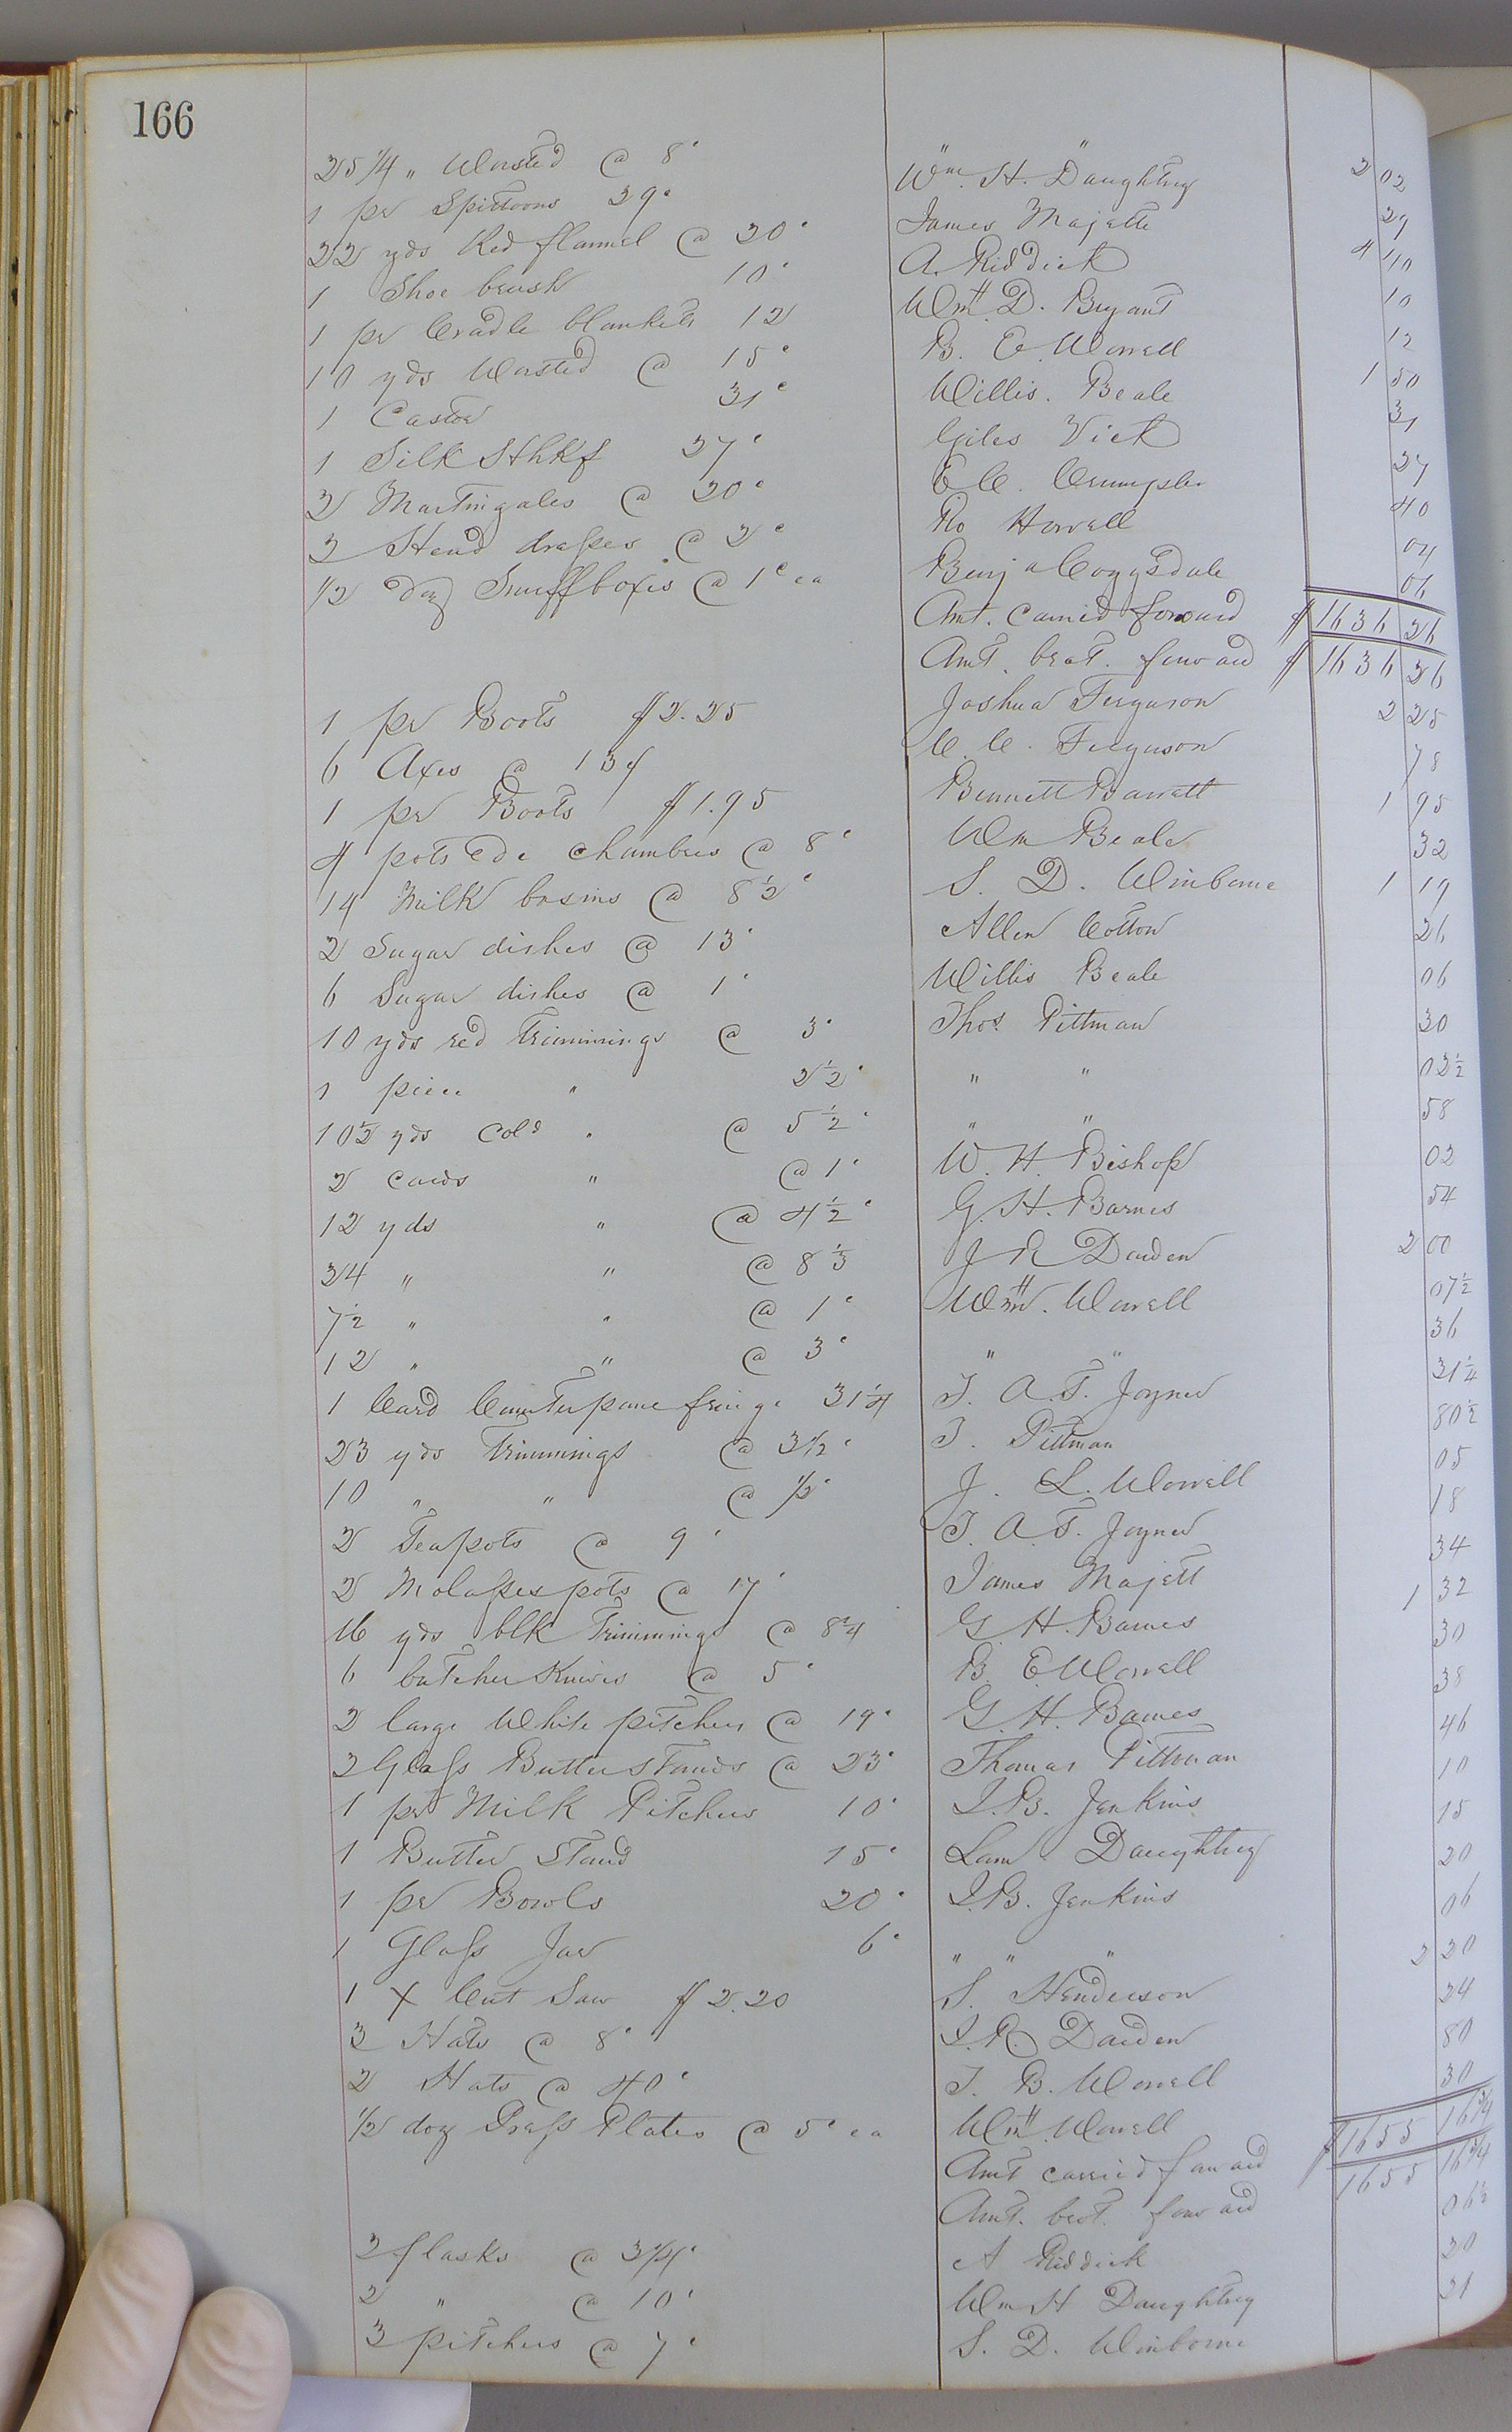 166
25 1/4 " Worsted @ 8c Wm. H. Daughtrey 2 02
1 pr Spittoons 29c James Majette 29
22 yds Red flannel @ 20c A. Riddick 4 40
1 Shoe brush 10c Wm H D. Bryant 10
1 pr Cradle blankets 12 B. E. Worrell 12
10 yds Worsted @ 15c Willis. Beale 1 50
1 Castor 31c Giles Vick 31
1 Silk Hhkf 27c E C. Crumpler 27
2 Martingales @ 20c Ro Howell 40
2 Head dresses @ 2c Benja Coggsdale 04
1/2 doz Snuffboxes @ 1c ea 06
Amt. carried forward $ 1636 26
Amt. brot. forward $ 1636 26
1 pr Boots $2.25 Joshua Ferguson 2 25
6 Axes @ 13c C. C. Ferguson 78
1 pr Boots $1.95 Bennett Barrett 1 95
4 pots de chambres @ 8c Wm Beale 32
14 Milk basins @ 8 1/2c S. D. Winborne 1 19
2 Sugar dishes @ 13c Allen Cotton 26
6 Sugar dishes @ 1c Willis Beale 06
10 yds red Trimmings @ 3c Thos Pittman 30
1 piece " 2 1/2c " " 02 1/2
10 1/2 yds Cold " @ 5 1/2c " " 58
2 cards " @ 1c W. H. Bishop 02
12 yds " @ 4 1/2c G. H. Barnes 54
24 " " @ 8 1/3 J R Darden 2 00
7 1/2 " " @ 1c Wm H. Worrell 07 1/2
12 " " @ 3c " " 36
1 Card Counterpane fringe 31 1/4 T. A. T. Joyner 31 1/4
23 yds Trimmings @ 3 1/2c T. Pittman 80 1/2
10 " " @ 1/2c J. L. Worrell 05
2 Teapots @ 9c T. A. T. Joyner 18
2 Molasses pots @ 17c James Majett 34
16 yds blk Trimmings @ 8 1/4 G H. Barnes 1 32
6 butcher Knives @ 5c B. E Worrell 30
2 large White pitchers @ 19c G. H. Barnes 38
2 Glass Butter stands @ 23c Thomas Pittman 46
1 pr Milk Pitchers 10c I. B. Jenkins 10
1 Butter Stand 15c Lam. Daughtrey 15
1 pr Bowls 20c I. B. Jenkins 20
1 Glass Jar 6c " " " 06
1 X Cut Saw $2.20 S. Henderson 2 20
3 Hats @ 8c I. R. Darden 24
2 Hats @ 40c T. B. Worrell 80
1/2 doz Plates @ 5c ea Wm H. Worrell 30
Amt carried forward $ 1655 16 3/4
Amt. brot. forward 1655 16 3/4
2 flasks @ 3 1/4c A Riddick 06 1/2
2 " @ 10c Wm H Daughtrey 20
3 pitchers @ 7c S. D. Winborne 21